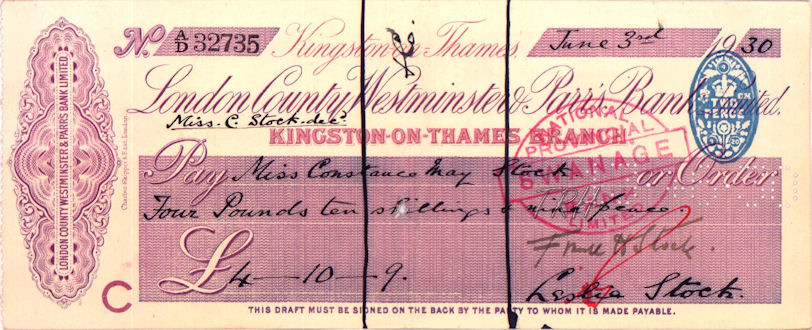 LONDON COUNTY WESTMINSTER & PARRS BANK LIMITED.
Nº A/D 32735 Kingston-on-Thames, June 3rd 1930
& Co
London County Westminster & Parr's Bank Limited.
TWO PENCE
Miss. C. Stock. decd
KINGSTON-ON-THAMES BRANCH
NATIONAL PROVINCIAL
SWANAGE
BANK LIMITED
Pay Miss Constance May Stock or Order
Four Pounds ten shillings & nine pence.
£4—10—9.
Frank H Stock.
Leslie Stock.
C
THIS DRAFT MUST BE SIGNED ON THE BACK BY THE PARTY TO WHOM IT IS MADE PAYABLE.
LONDON COUNTY WESTMINSTER & PARRS BANK LIMITED.